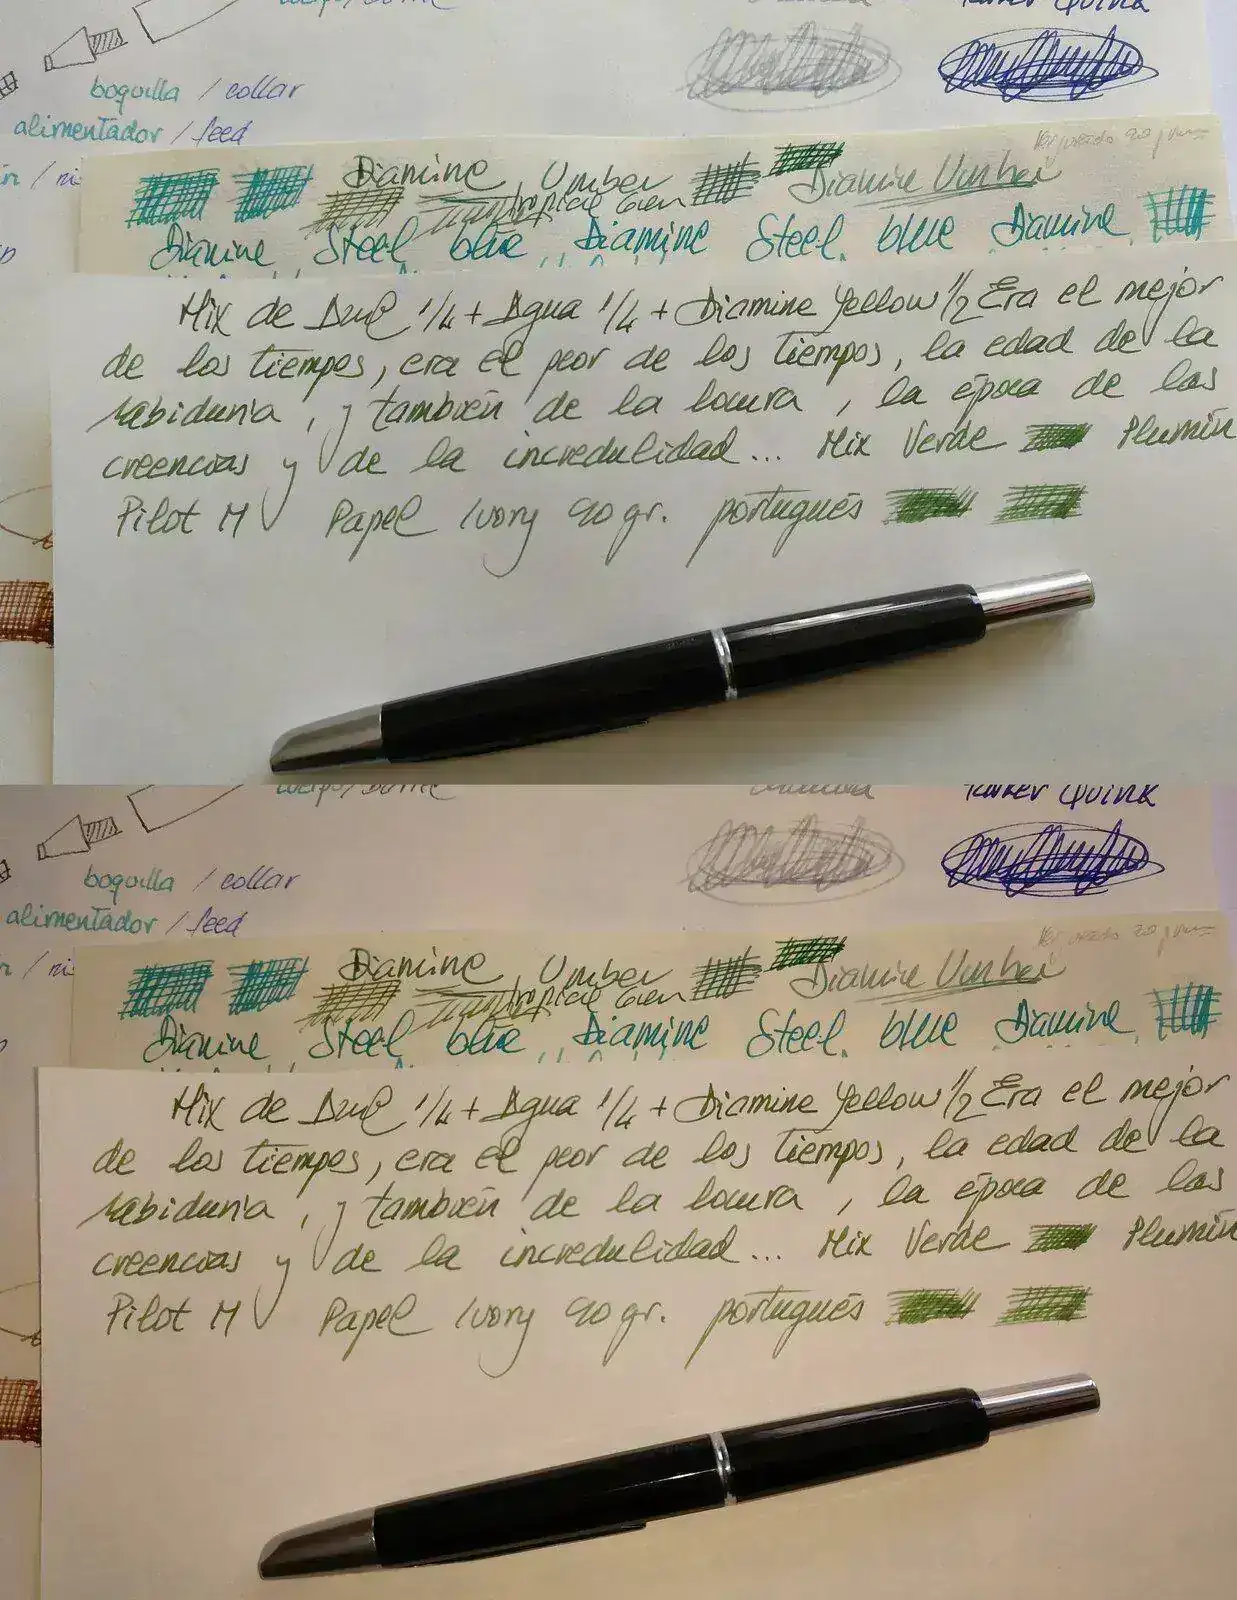 boquilla / collar
alimentador / feed
Diamine Umber
Diamine Umber
Diamine Steel blue Diamine Steel blue Diamine
Mix de 1/4 + Agua 1/4 + Diamine Yellow 1/2 Era el mejor
de los tiempos, era el peor de los tiempos, la edad de la
sabiduria, y también de la locura, la época de las
creencias y de la incredulidad... Mix Verde Plumín
Pilot M Papel Ivory 90 gr. portugués
Parker Quink
boquilla / collar
alimentador / feed
Diamine Umber
Diamine Umber
Diamine Steel blue Diamine Steel blue Diamine
Mix de 1/4 + Agua 1/4 + Diamine Yellow 1/2 Era el mejor
de los tiempos, era el peor de los tiempos, la edad de la
sabiduria, y también de la locura, la época de las
creencias y de la incredulidad... Mix Verde Plumín
Pilot M Papel Ivory 90 gr. portugués